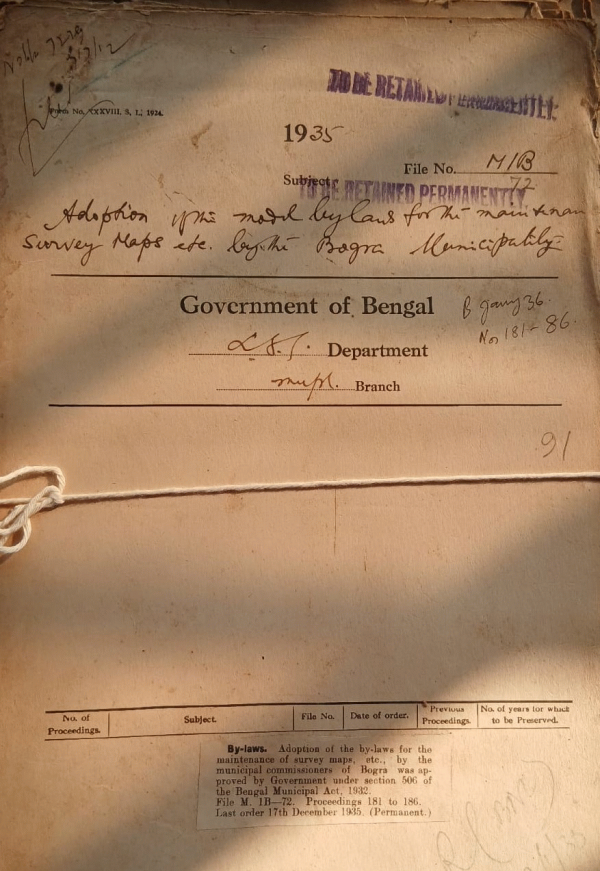 Form No. XXXVIII. S, I., 1924.
TO BE RETAINED PERMANENTLY.
1935
File No. M/B
72
Subject
TO BE RETAINED PERMANENTLY.
Adoption of the model bylaws for the
Survey Maps etc. by the Bogra Municipality
Government of Bengal
B 36.
Nos 181-86.
L.S.G. Department
Branch
91
No. of Proceedings. Subject. File No. Date of order. Previous Proceedings. No. of years for which to be Preserved.
By-laws. Adoption of the by-laws for the
maintenance of survey maps, etc., by the
municipal commissioners of Bogra was ap-
proved by Government under section 506 of
the Bengal Municipal Act, 1932.
File M. 1B—72. Proceedings 181 to 186.
Last order 17th December 1935. (Permanent.)